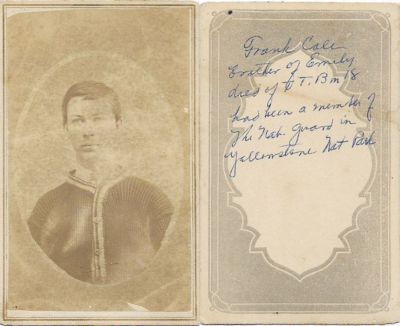 Frank Cole
brother of Emily
died of T.B. 18
had been a member of
The Nat. guard in
Yallowstone Nat Park